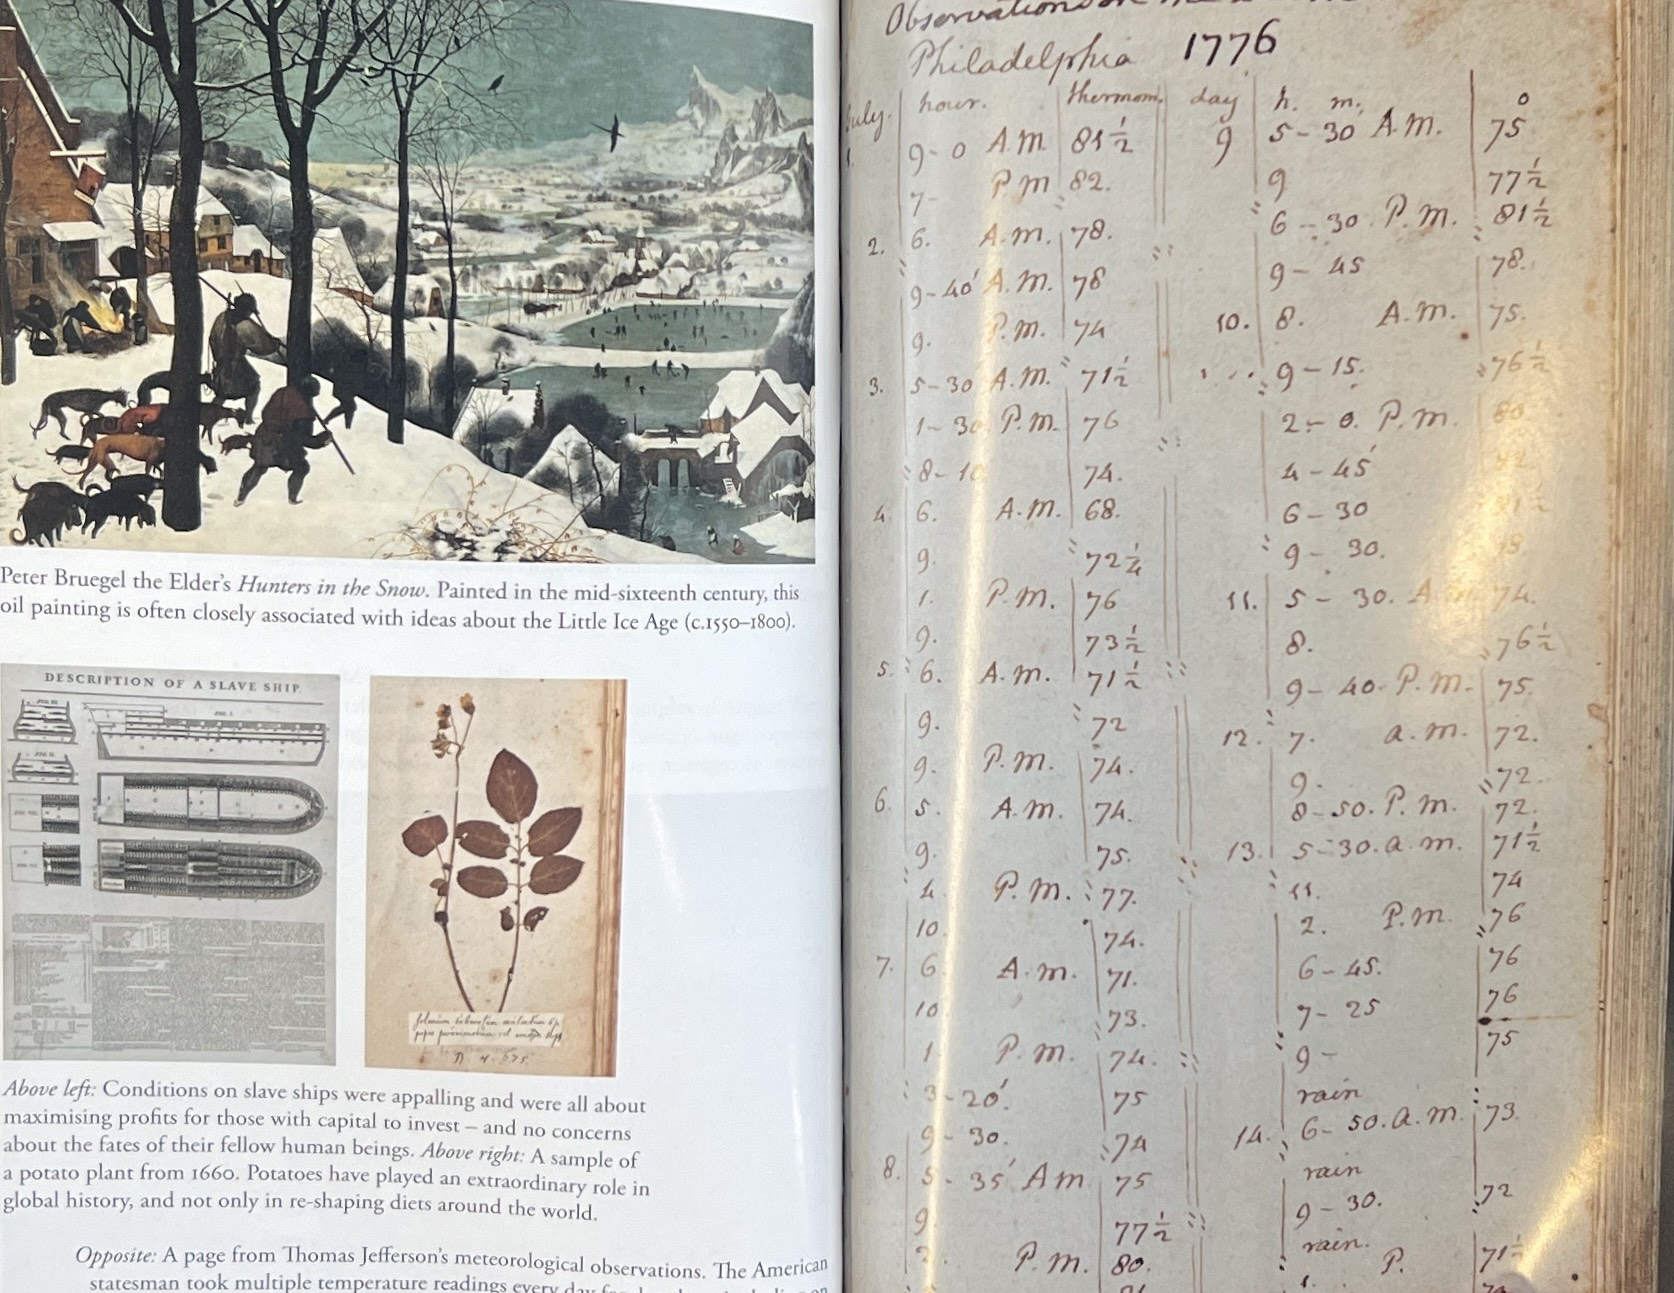 Peter Bruegel the Elder's Hunters in the Snow. Painted in the mid-sixteenth century, this
oil painting is often closely associated with ideas about the Little Ice Age (c.1550–1800).
DESCRIPTION OF A SLAVE SHIP.
Above left: Conditions on slave ships were appalling and were all about
maximising profits for those with capital to invest – and no concerns
about the fates of their fellow human beings. Above right: A sample of
a potato plant from 1660. Potatoes have played an extraordinary role in
global history, and not only in re-shaping diets around the world.
Opposite: A page from Thomas Jefferson's meteorological observations. The American
statesman took multiple temperature readings every day
Observations
Philadelphia 1776
July. hour. thermom.
1. 9-0 A.M. 81½
7- P.M. 82.
2. 6. A.m. 78.
9-40' A.m. 78
9. P.m. 74
3. 5-30 A.m. 71½
1-30 P.m. 76
8-10 74.
4. 6. A.m. 68.
9. 72¼
1. P.m. 76
9. 73½
5. 6. A.m. 71½
9. 72
9. P.m. 74.
6. 5. A.m. 74.
9. 75.
4. P.m. 77.
10. 74.
7. 6 A.m. 71.
10 73.
1 P.m. 74.
3-20'. 75
9-30. 74
8. 5-35' A m 75
9. 77½
2. P.m. 80.
day h. m. o
9 5-30' A.m. 75
9 77½
6-30. P.m. 81½
9-45 78.
10. 8. A.m. 75.
9-15. 76½
2-0. P.m. 80
4-45'
6-30 81½
9-30. 78.
11. 5-30. A.m. 74.
8. 76½
9-40. P.m. 75.
12. 7. a.m. 72.
9. 72.
8-50. P.m. 72.
13. 5-30. a.m. 71½
11. 74
2. P.m. 76
6-45. 76
7-25 76
9- 75
rain
14. 6-50. a.m. 73.
rain
9-30. 72
rain.
1. P. 71½